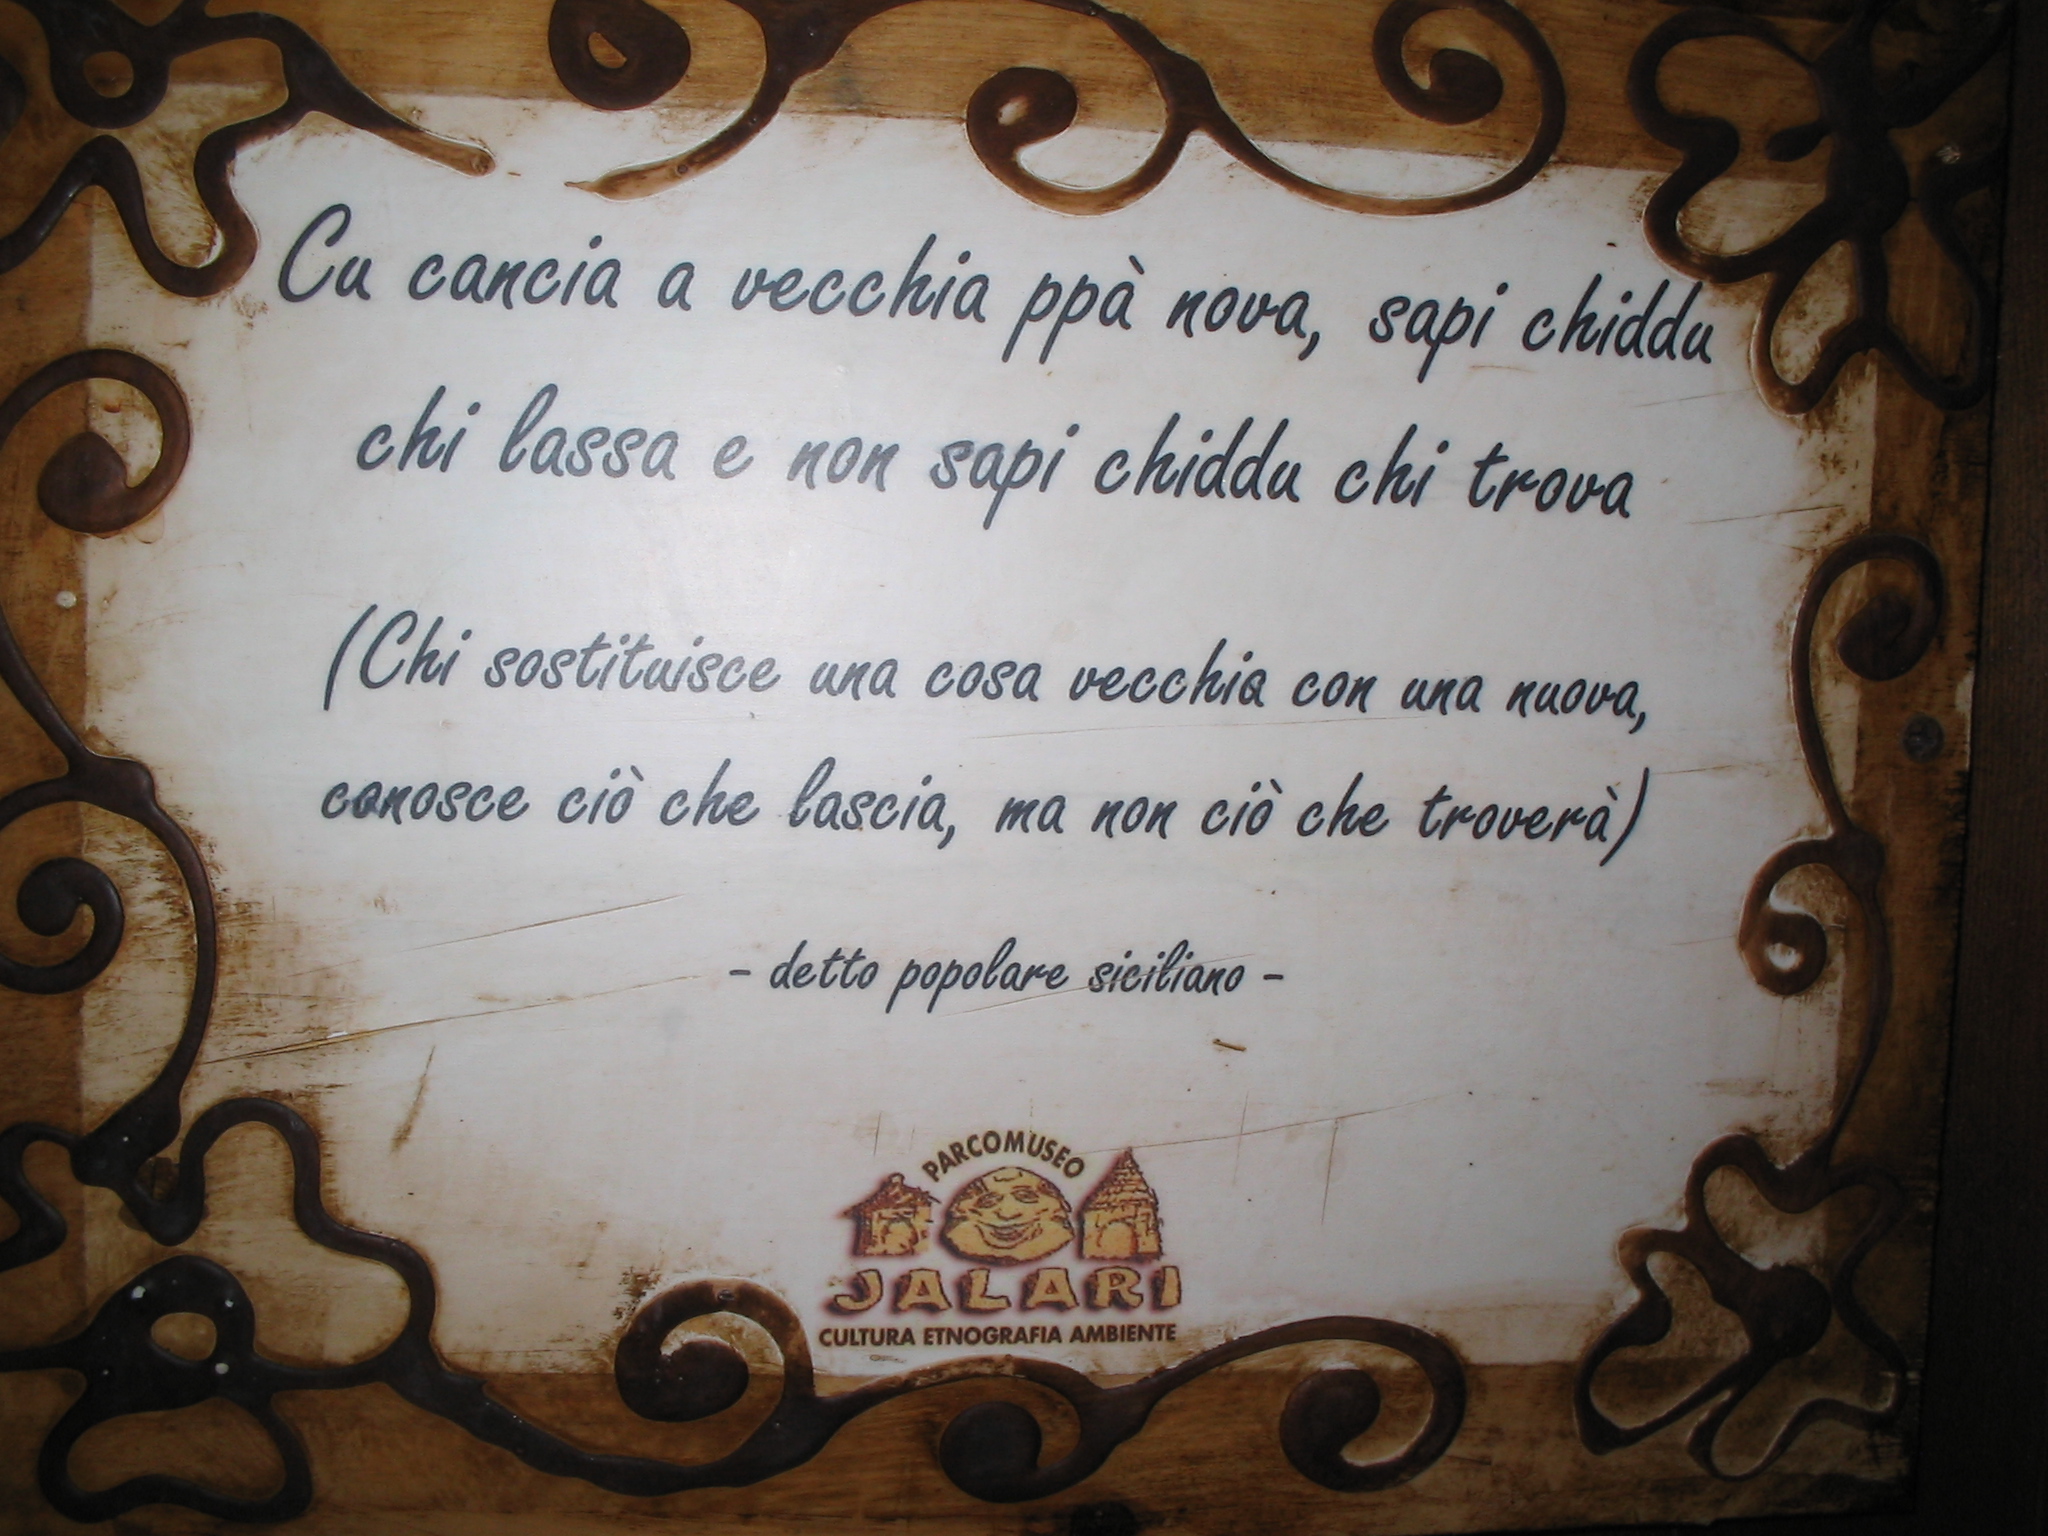 Cu cancia a vecchia ppà nova, sapi chiddu
chi lassa e non sapi chiddu chi trova
(Chi sostituisce una cosa vecchia con una nuova,
conosce ciò che lascia, ma non ciò che troverà)
- detto popolare siciliano -
PARCOMUSEO
JALARI
CULTURA ETNOGRAFIA AMBIENTE